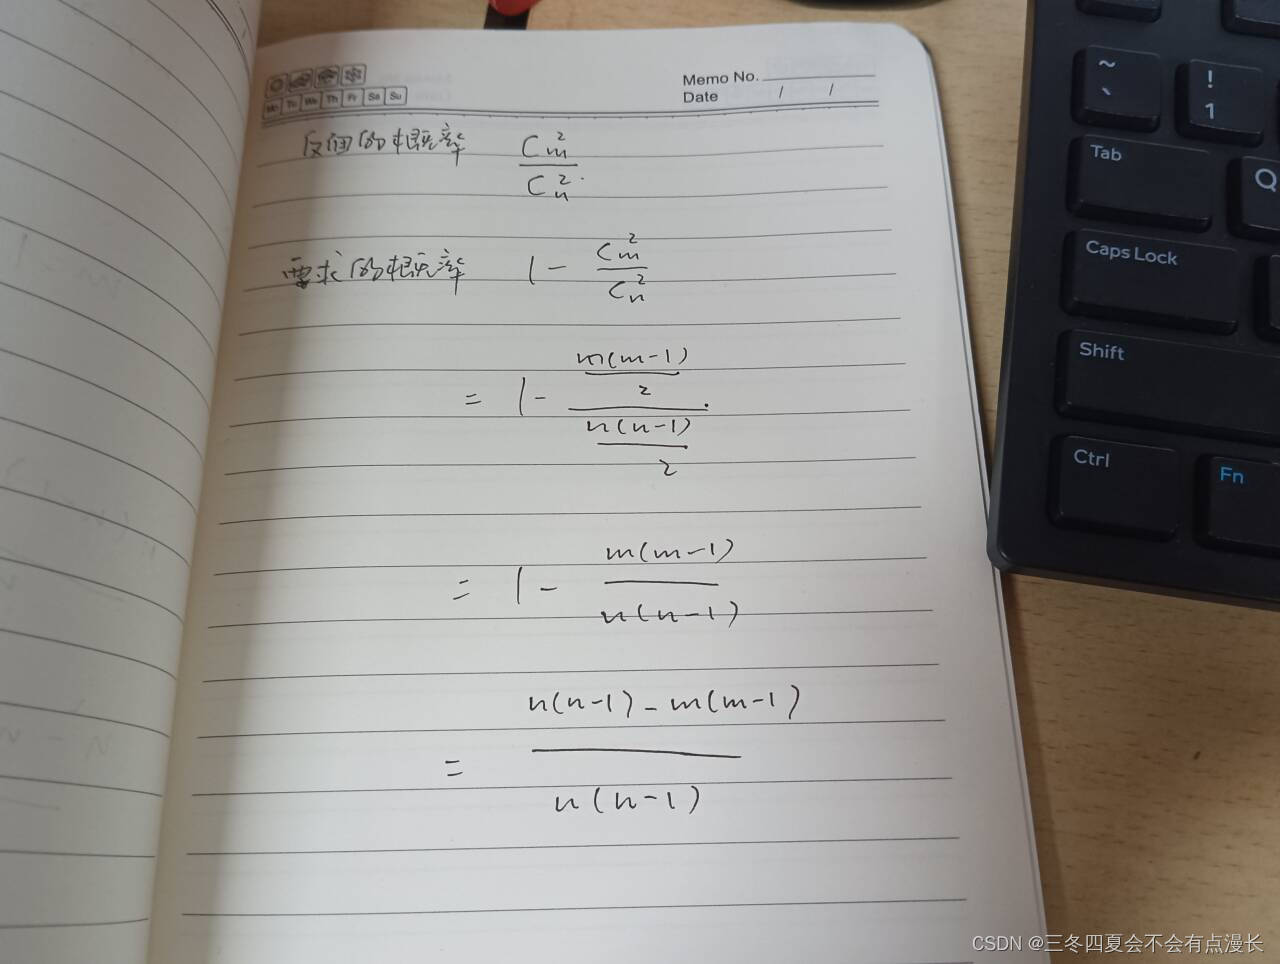 Memo No.
Date / /
Mo Tu We Th Fr Sa Su
反面的概率 C_m^2 / C_n^2
要求的概率 1 - C_m^2 / C_n^2
= 1 - (m(m-1) / 2) / (n(n-1) / 2)
= 1 - m(m-1) / n(n-1)
= n(n-1) - m(m-1) / n(n-1)
~ `
! 1
Tab
Q
Caps Lock
Shift
Ctrl
Fn
CSDN @三冬四夏会不会有点漫长